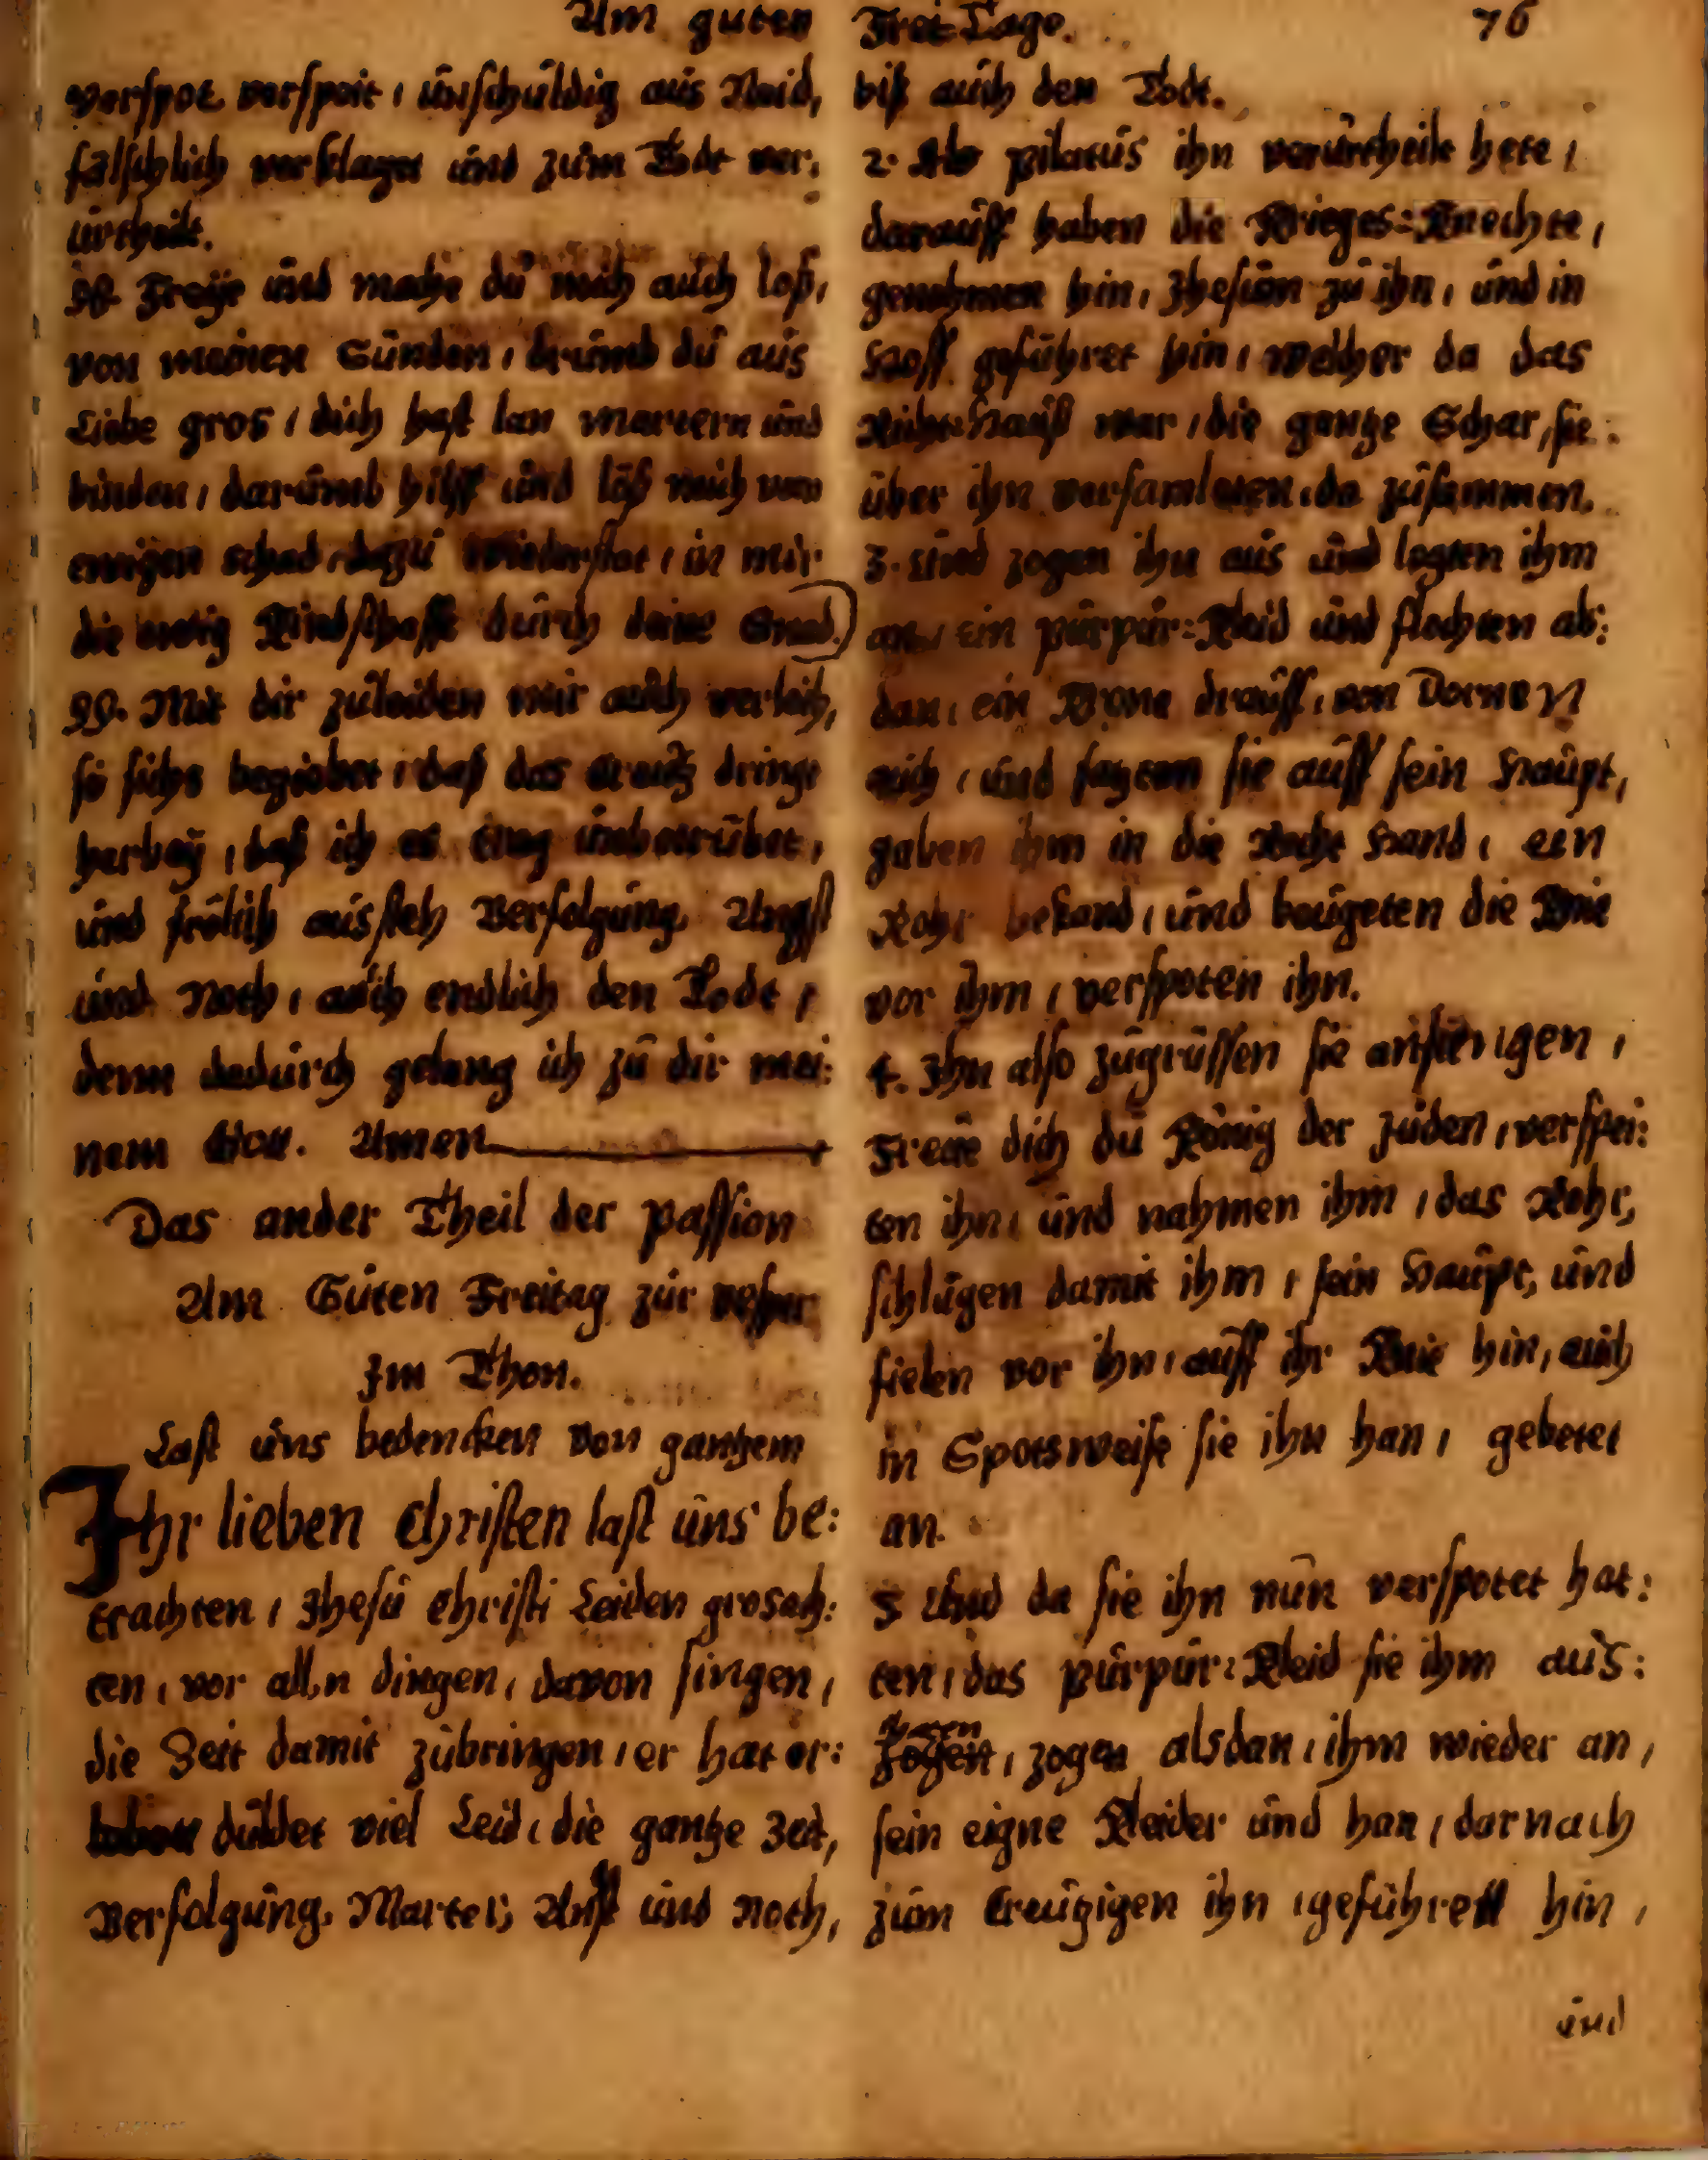 Am guten Frei Tage. 76
verspot verspeit, unschuldig aus Neid,
fälschlich verklaget und zum Tode ver:
urtheilt.
98. Freÿe und mache du mich auch loß,
von meinen Sünden, drumb du aus
Liebe gros, dich hast lan martern und
binden, darumb hilff und löß mich vom
ewigen schad, dazu wiederstat, in mir
die Kindschafft durch deine Gnad.
99. Mit dir zuleiden mir auch verleih,
so sichs begiebet, daß das Creutz dringt
herbeÿ, daß ich es trag unbetrübet,
und frölich aussteh Verfolgung, Angst
und Noth, auch endlich den Tode,
denn dadurch gelang ich zu dir mei:
nem Gott. Amen
Das ander Theil der passion
Am Guten Freitag zur vesper
Im Thon.
Last uns bedencken von gantzem
Ihr lieben Christen last uns be:
trachten, Jhesu Christi Leiden grosach:
ten, vor alln dingen, davon singen,
die Zeit damit zubringen, er hat er:
duldet viel Leid, die gantze Zeit,
Verfolgung, Marter, Angst und Noth,
biß auch den Tode.
2. Als pilatus ihn verurtheilt hete,
darauff haben die Krieges=Knechte,
genohmen hin, Jhesum zu ihn, und in
Hoff geführet hin, welcher da das
Richt=Hauß war, die gantze Schar, sie
über ihn versamleten, da zusammen.
3. Und zogen ihn aus und legten ihm
an, ein purpur=Kleid und flochten als:
dan, ein Krone drauff, von Dornen
auch, und satzten sie auff sein Haupt,
gaben ihm in die Recht Hand, ein
Rohr bekand, und beugeten die Knie
vor ihm, verspoten ihn.
4. Ihn also zugrüssen sie anfiengen,
Freue dich du König der Juden, verspei:
ten ihn, und nahmen ihm, das Rohr,
schlugen damit ihm, sein Haupt, und
fielen vor ihn, auff ihr Knie hin, auch
in Spotsweise sie ihn han, gebetet
an.
5 Und da sie ihn nun verspotet hat:
ten, das purpur=Kleid sie ihm aus:
zogen, zogen alsdan, ihm wieder an,
sein eigne Kleider und han, darnach
zum Creutzigen ihn, geführett hin,
und